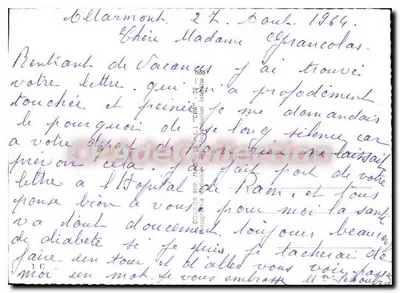 Marmont. 27. Aout. 1964.
Chère Madame Grancolas.
Rentrant de Vacances j'ai trouvé
votre lettre qui m'a profodément
touchée et peinée je me demandais
le pourquoi de ce long silence car
a votre départ de rien ne laissait
prévoir cela. J'ai fait part de votre
lettre a l'Hopital de et tous
pense bien a vous pour moi la santé
va tout doucement toujour beaucoup
de diabète si je puis je tacherai de
faire un tour et d'alles vous voir
moi un mot. Je vous embrasse